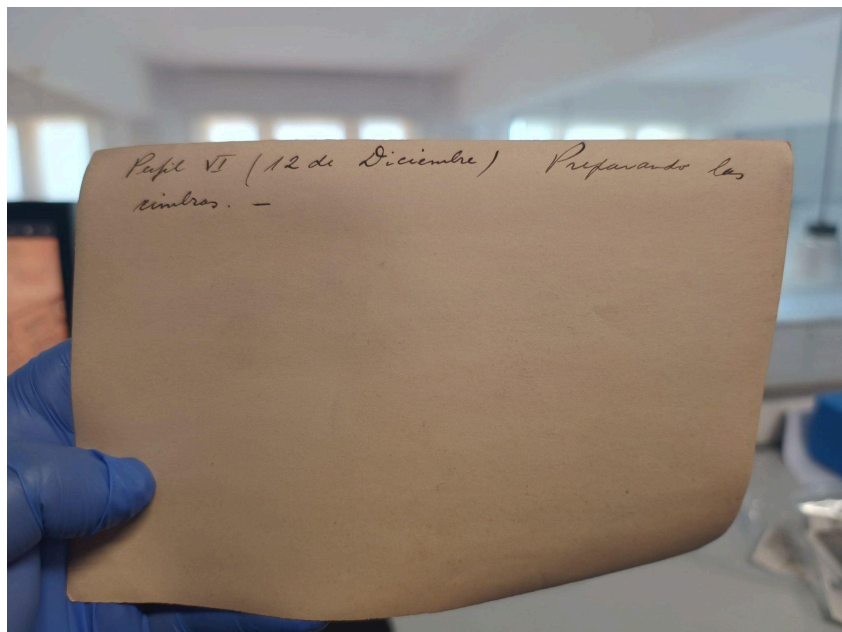 Perfil VI (12 de Diciembre) Preparando las
cimbras. -